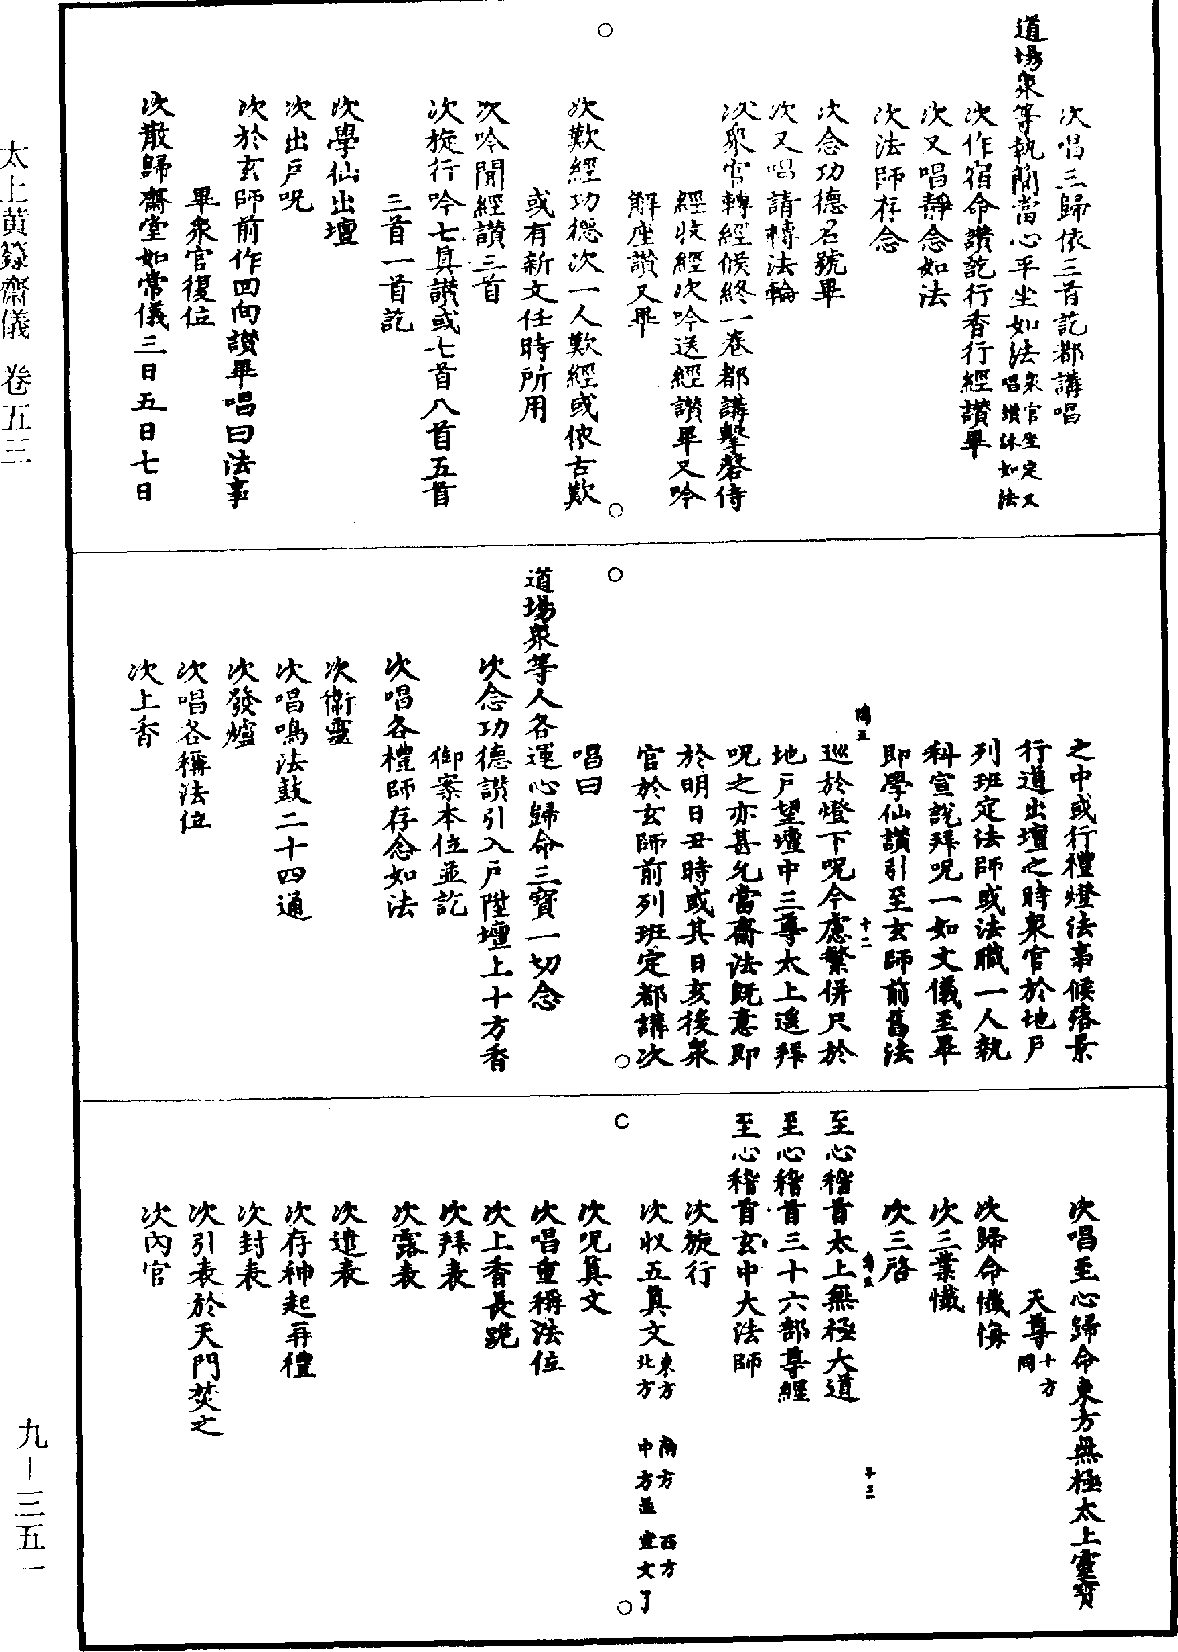 次唱三歸依三首訖都講唱
道場衆等執簡當心平坐如法衆官坐定又唱讚詠如法
次作宿命讚訖行香行經讚畢
次又唱靜念如法
次法師存念
次念功德名號畢
次又唱請轉法輪
次衆官轉經候終一卷都講擊磬侍
經收經次吟送經讚畢又吟
解座讚又畢
次歎經功德次一人歎經或依古歎
或有新文任時所用
次吟聞經讚三首
次旋行吟七真讚或七首八首五首
三首一首訖
次學仙出壇
次出戶呪
次於玄師前作回向讚畢唱曰法事
畢衆官復位
次散歸齋堂如常儀三日五日七日
之中或行禮燈法事候落景
行道出壇之時衆官於地戶
列班定法師或法職一人執
科宣說拜呪一如文儀至畢
即學仙讚引至玄師前舊法
巡於燈下呪今慮繁併只於
地戶望壇中三尊太上遙拜
呪之亦甚允當齋法旣意即
於明日丑時或其日亥後衆
官於玄師前列班定都講次
唱曰
道場衆等人各運心歸命三寶一切念
次念功德讚引入戶陞壇上十方香
御案本位並訖
次唱各禮師存念如法
次衛靈
次唱鳴法鼓二十四通
次發爐
次唱各稱法位
次上香
次唱至心歸命東方無極太上靈寶
天尊十方同
次歸命懺悔
次三業懺
次三啓
至心稽首太上無極大道
至心稽首三十六部尊經
至心稽首玄中大法師
次旋行
次收五真文東方 南方 西方 北方 中方並 靈文了
次呪真文
次唱重稱法位
次上香長跪
次拜表
次露表
次達表
次存神起再禮
次封表
次引表於天門焚之
次內官
太上黃籙齋儀 卷五三
九－三五一